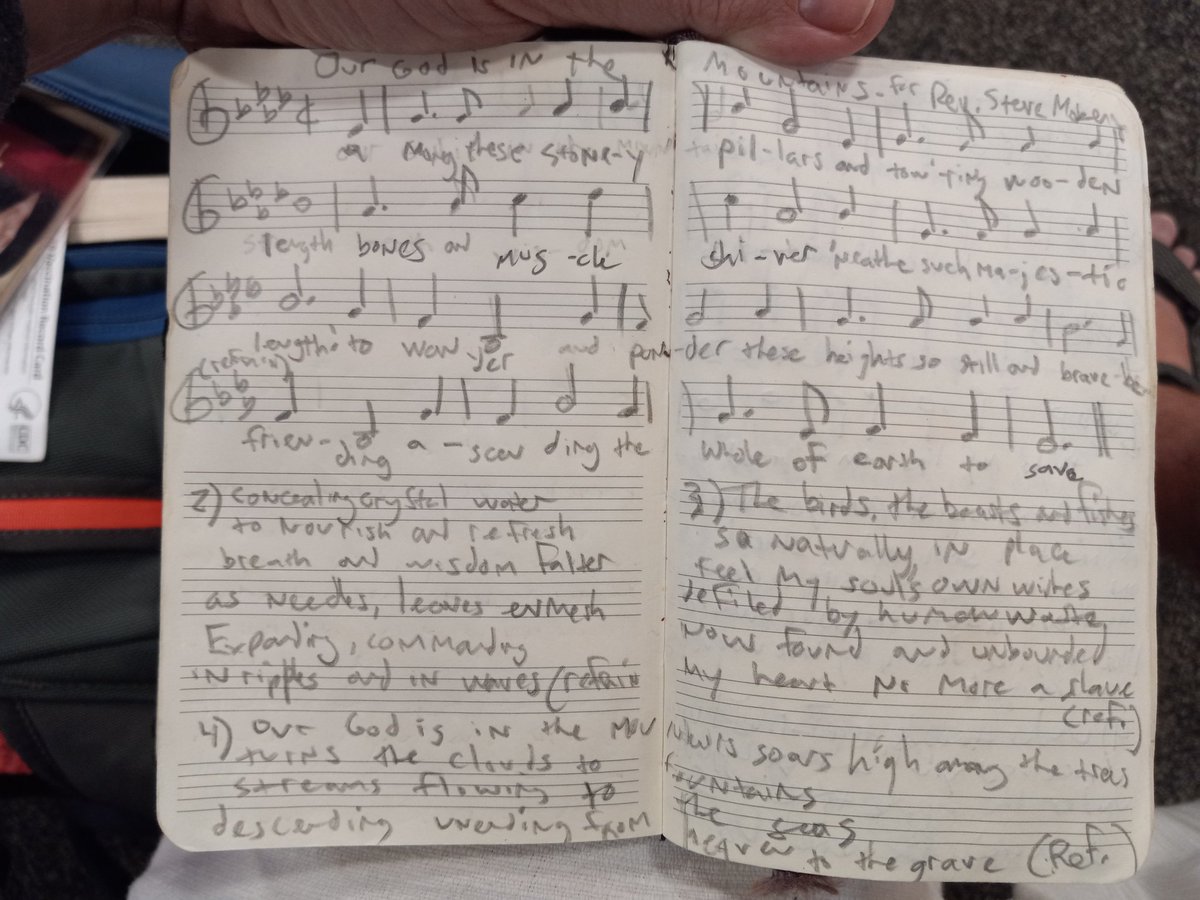 Our God is in the Mountains - for Rev. Steve
a mong these stone-y pil-lars and tow'ring woo-den
length bones and mus-cle shi-ver 'neathe such ma-jes-tic
length: to won der and pon-der these heights so still and brave be
(refrain)
frien-ding a-scen ding the whole of earth to save
2) Concealing crystal water
to nourish and refresh
breath and wisdom falter
as needes, leaves enmesh
Expanding, commanding
in ripples and in waves (refrain
3) The birds, the beasts and fishes
so naturally, in place
feel my soul's own wishes
defiled by human waste,
Now found and unbounded
my heart no more a slave
(ref.)
4) Our God is in the mountains soars high among the trees
turns the clouds to fountains
streams flowing to the seas
descending unending from heaven to the grave (Ref.)